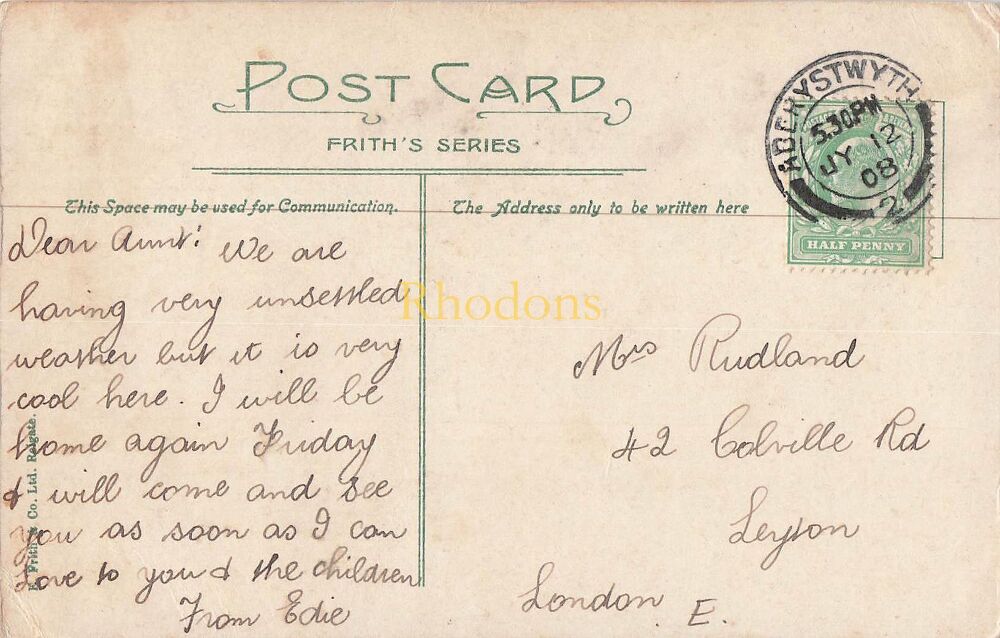 POST CARD
FRITH'S SERIES
This Space may be used for Communication.
The Address only to be written here
ABERYSTWYTH
5.30PM
JY 12
08
2
HALF PENNY
Dear Aunt! We are
having very unsettled
weather but it is very
cool here. I will be
home again Friday
& will come and see
you as soon as I can
Love to you & the children
From Edie
Mrs Rudland
42 Colville Rd
Leyton
London E.
F. Frith & Co. Ltd. Reigate.
Rhodons